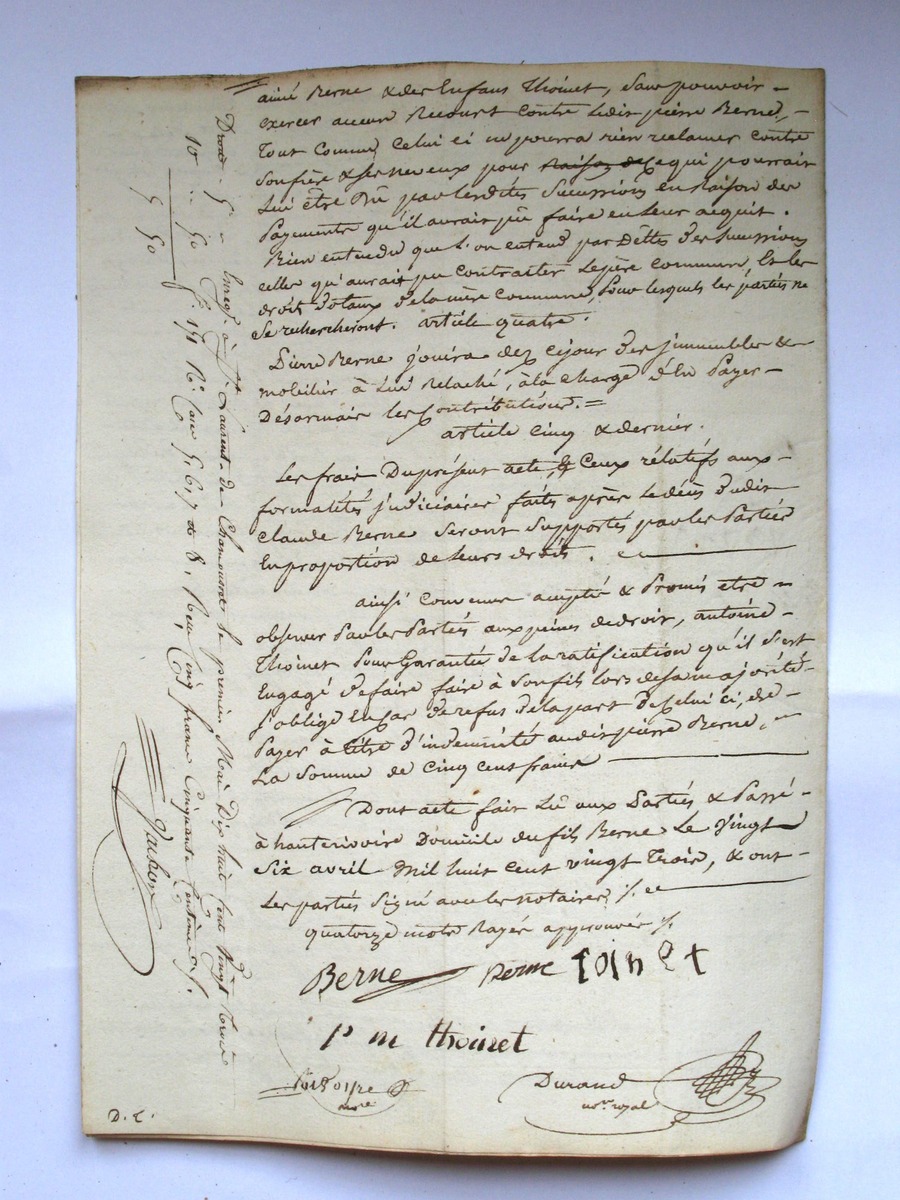 aimé Berne & des Enfans Thoinet, sans pouvoir
exercer aucun Recours contre Ledit pierre Berne,
Tout comme Celui ci ne pourra rien reclamer contre
Son frère & ses neveux pour Raison de ce qui pourrait
Lui être Dû par lesdites Sucussions en Raison des
Payements qu'il aurait pû faire en leur acquit.
Bien entendu que l'on entend par Dettes des sucussions
celles qu'aurait pu contracter Le père commun, Et les
droits dotaux de la mère commune, pour lesquels les parties ne
Se rechercheront. article quatre.
Pierre Berne jouira dez cejour des immeubles &
mobilier à Lui Relaché, à la charge d'En Payer
Désormais les Contributions. =
article Cinq & dernier.
Les frais Du présent acte, & Ceux rélatifs aux
formalités judiciaires faites après le décès dudit
Claude Berne Seront Supportés par les Parties
En proportion de leurs droits.
ainsi convenu accepté & Promis etre
observer Par les Parties aux peines de droit, antoine
Thoinet Pour Garantie de la ratification qu'il S'est
Engagé de faire faire à Son fils lors de sa majorité
S'oblige En Cas de refus de la part de Celui ci, de
Payer à titre d'indemnité audit pierre Berne,
La Somme de Cinq Cent francs
Dont acte fait Lû aux Parties & Passé
à hauterivoire Domicile du fils Berne Le Vingt
Six avril Mil huit cent vingt Trois, & ont
Les parties Signé avec les notaires ./.
quatorze mots Rayés approuvés ./.
Berne Berne toinet
P m thoinet
nore
Durand
nore royal
Droit 5 f
10 .. 50
5 50
Enregé à St Laurent de Chamousset le premier Mai Dix huit Cent Vingt trois
f° 151 R° Case 5, 6, 7 et 8, Reçu Cinq francs Cinquante Centimes
D. C.